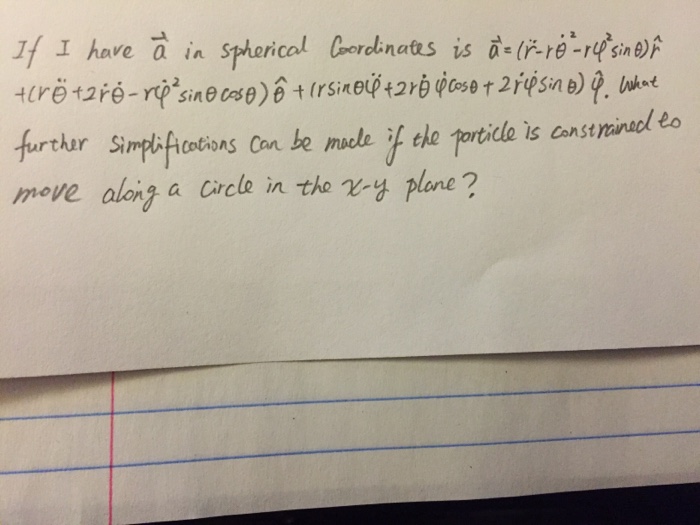 If I have a⃗ in spherical Coordinates is a⃗=(r̈-rθ̇²-rφ̇²sinθ)r̂
+(rθ̈+2ṙθ̇-rφ̇²sinθcosθ)θ̂+(rsinθφ̈+2rθ̇φ̇cosθ+2ṙφ̇sinθ)φ̂. What
further simplifications can be made if the particle is constrained to
move along a circle in the x-y plane?